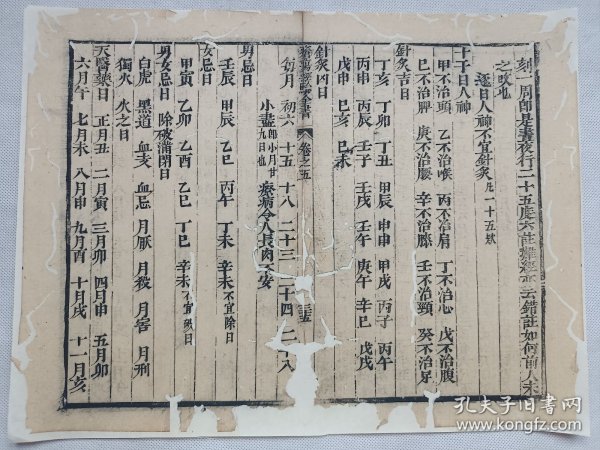 一刻一周卽是晝夜行二十五度六註難經亦云錯註如何前人未
之改也
逐日人神不宜針灸凡一十五款
十干日人神
甲不治頭 乙不治喉 丙不治肩 丁不治心 戊不治腹
巳不治脾 庚不治腰 辛不治膝 壬不治頸 癸不治足
針灸吉日
丁亥 丁卯 丁丑 甲辰 甲申 甲戌 丙子 丙午
丙申 丙辰 壬子 壬戌 壬午 庚午 辛巳 戊戌
戊申 巳亥 巳未
針灸凶日
卷之五
每月 初六 十五 十八 二十三 二十四 二十八
小盡卽小月廿九日也 療病令人長肉不安
男忌日
壬辰 甲辰 乙巳 丙午 丁未 辛未不宜除日
女忌日
甲寅 乙卯 乙酉 乙巳 丁巳 辛未不宜破日
男女忌日 除破滿閉日
白虎 黑道 血支 血忌 月厭 月殺 月害 月刑
獨火 水之日
天醫藥日 正月丑 二月寅 三月卯 四月申 五月卯
六月午 七月未 八月申 九月酉 十月戌 十一月亥
孔夫子旧书网
www.kongfz.com